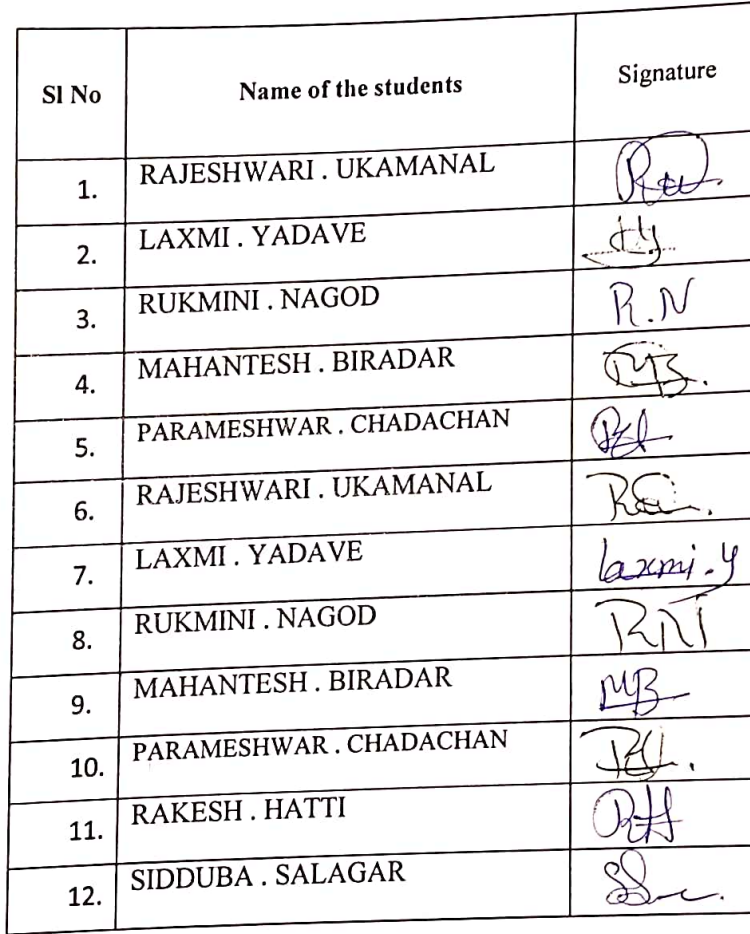 Sl No Name of the students Signature
1. RAJESHWARI . UKAMANAL
2. LAXMI . YADAVE
3. RUKMINI . NAGOD R.N
4. MAHANTESH . BIRADAR MB.
5. PARAMESHWAR . CHADACHAN
6. RAJESHWARI . UKAMANAL
7. LAXMI . YADAVE Laxmi.y
8. RUKMINI . NAGOD
9. MAHANTESH . BIRADAR MB
10. PARAMESHWAR . CHADACHAN
11. RAKESH . HATTI RH
12. SIDDUBA . SALAGAR